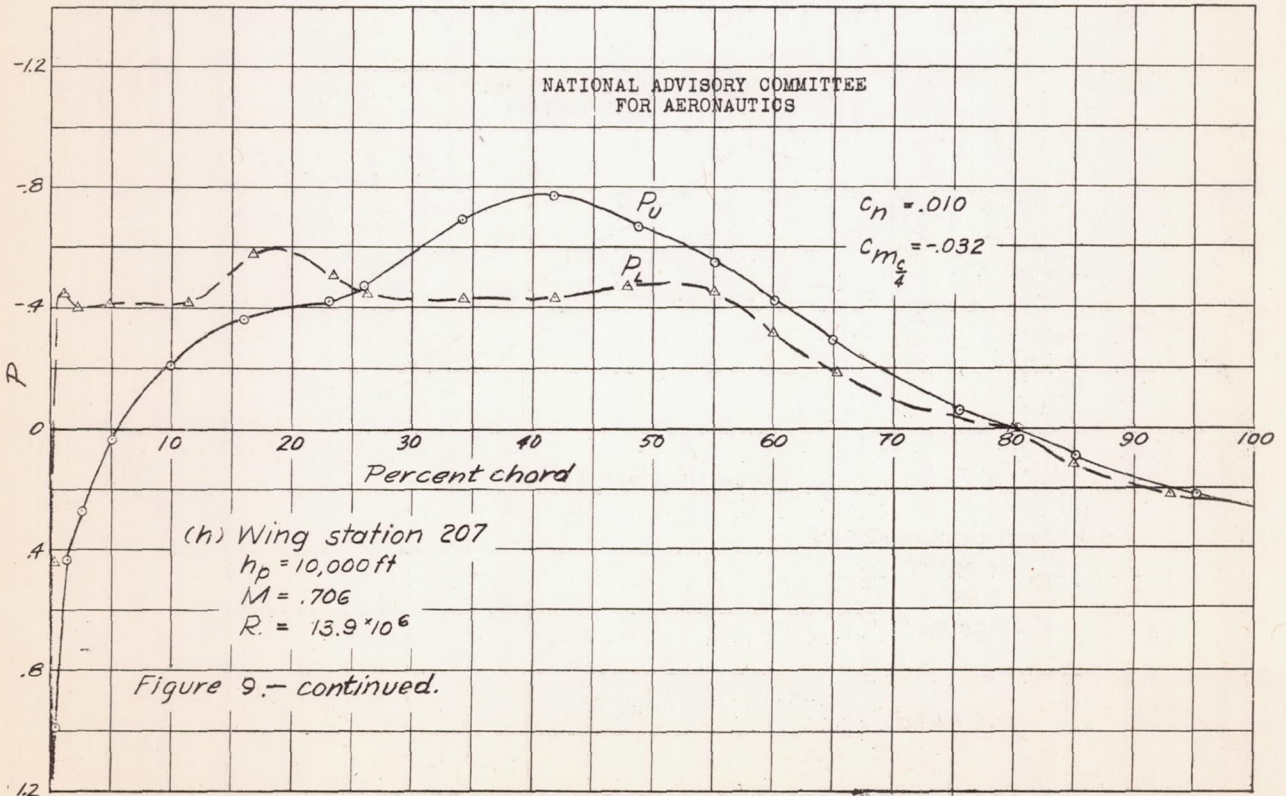 -1.2
NATIONAL ADVISORY COMMITTEE
FOR AERONAUTICS
-.8
P_U
c_n = .010
C_m_c/4 = -.032
P_L
-.4
P
0
10 20 30 40 50 60 70 80 90 100
Percent chord
(h) Wing station 207
.4
h_p = 10,000 ft
M = .706
R. = 13.9 × 10⁶
.6
Figure 9.- continued.
1.2